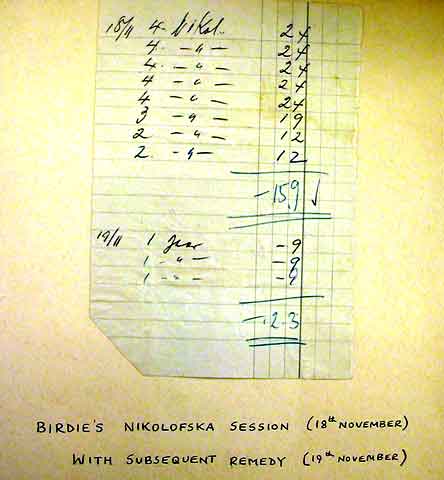 18/11 4. Nikol. 24
4. — " — 24
4. — " — 24
4 — " — 24
4 — " — 24
3 — " — 19
2 — " — 12
2. — " — 12
-15,9
19/11 1 -9
1 — " — -9
1 — " — -9
-2.3
BIRDIE'S NIKOLOFSKA SESSION (18th NOVEMBER)
WITH SUBSEQUENT REMEDY (19th NOVEMBER)